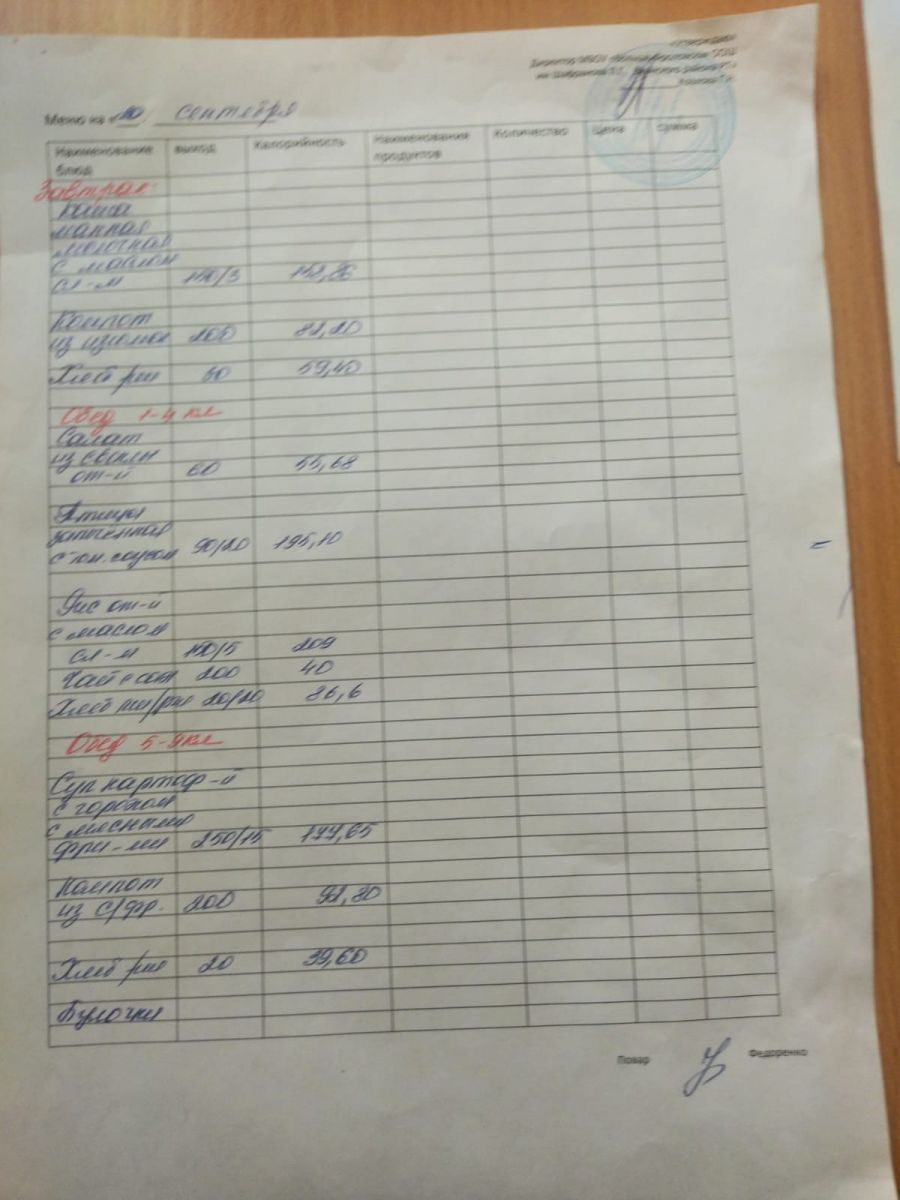 Утверждаю
Директор МБОУ
Меню на «10» сентября
Наименование блюд выход Калорийность Наименования продуктов Количество Цена сумма
Завтрак:
Каша
манная
молочная
с маслом
сл-м 150/3
Компот
из изюма 200 82,20
Хлеб рж 30 59,40
Обед 1-4 кл
Салат
из свеклы
от-й 60 55,68
Птица
запечённая
с том. соусом 90/20 195,10
Рис от-й
с маслом
сл-м 150/5 209
Чай с сах 200 40
Хлеб пш/рж 20/20 86,6
Обед 5-9 кл
Суп картоф-й
с горохом
с мясными
фри-ми 250/15 177,65
Компот
из с/фр. 200 92,80
Хлеб рж 20 39,60
Булочки
Повар Федоренко